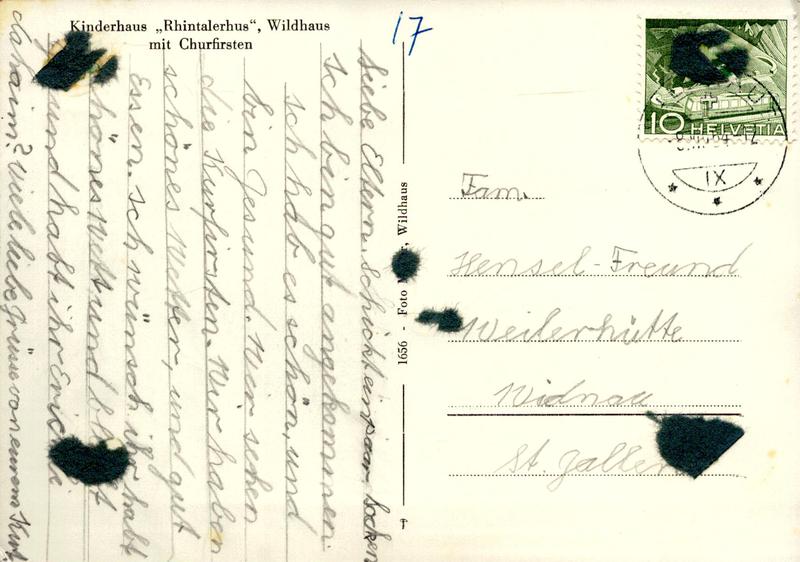 Kinderhaus „Rhintalerhus“, Wildhaus
mit Churfirsten
17
Liebe Eltern. schickt ein paar Socken
ich bin gut angekommen.
ich hab es schön, und
bin gesund. Wir sehen
die Kurfirsten. Wir haben
schönes Wetter, und gut
Essen. ich wünsch ihr habt
schönes Wett und
und habt ihr Ericke
daheim? Viele liebe Grüsse von eurem Kurt.
1656 - Foto Wildhaus
10 HELVETIA
IX
Fam.
Hensel-Freund
Weilerhütte
Widnau
St. Gallen